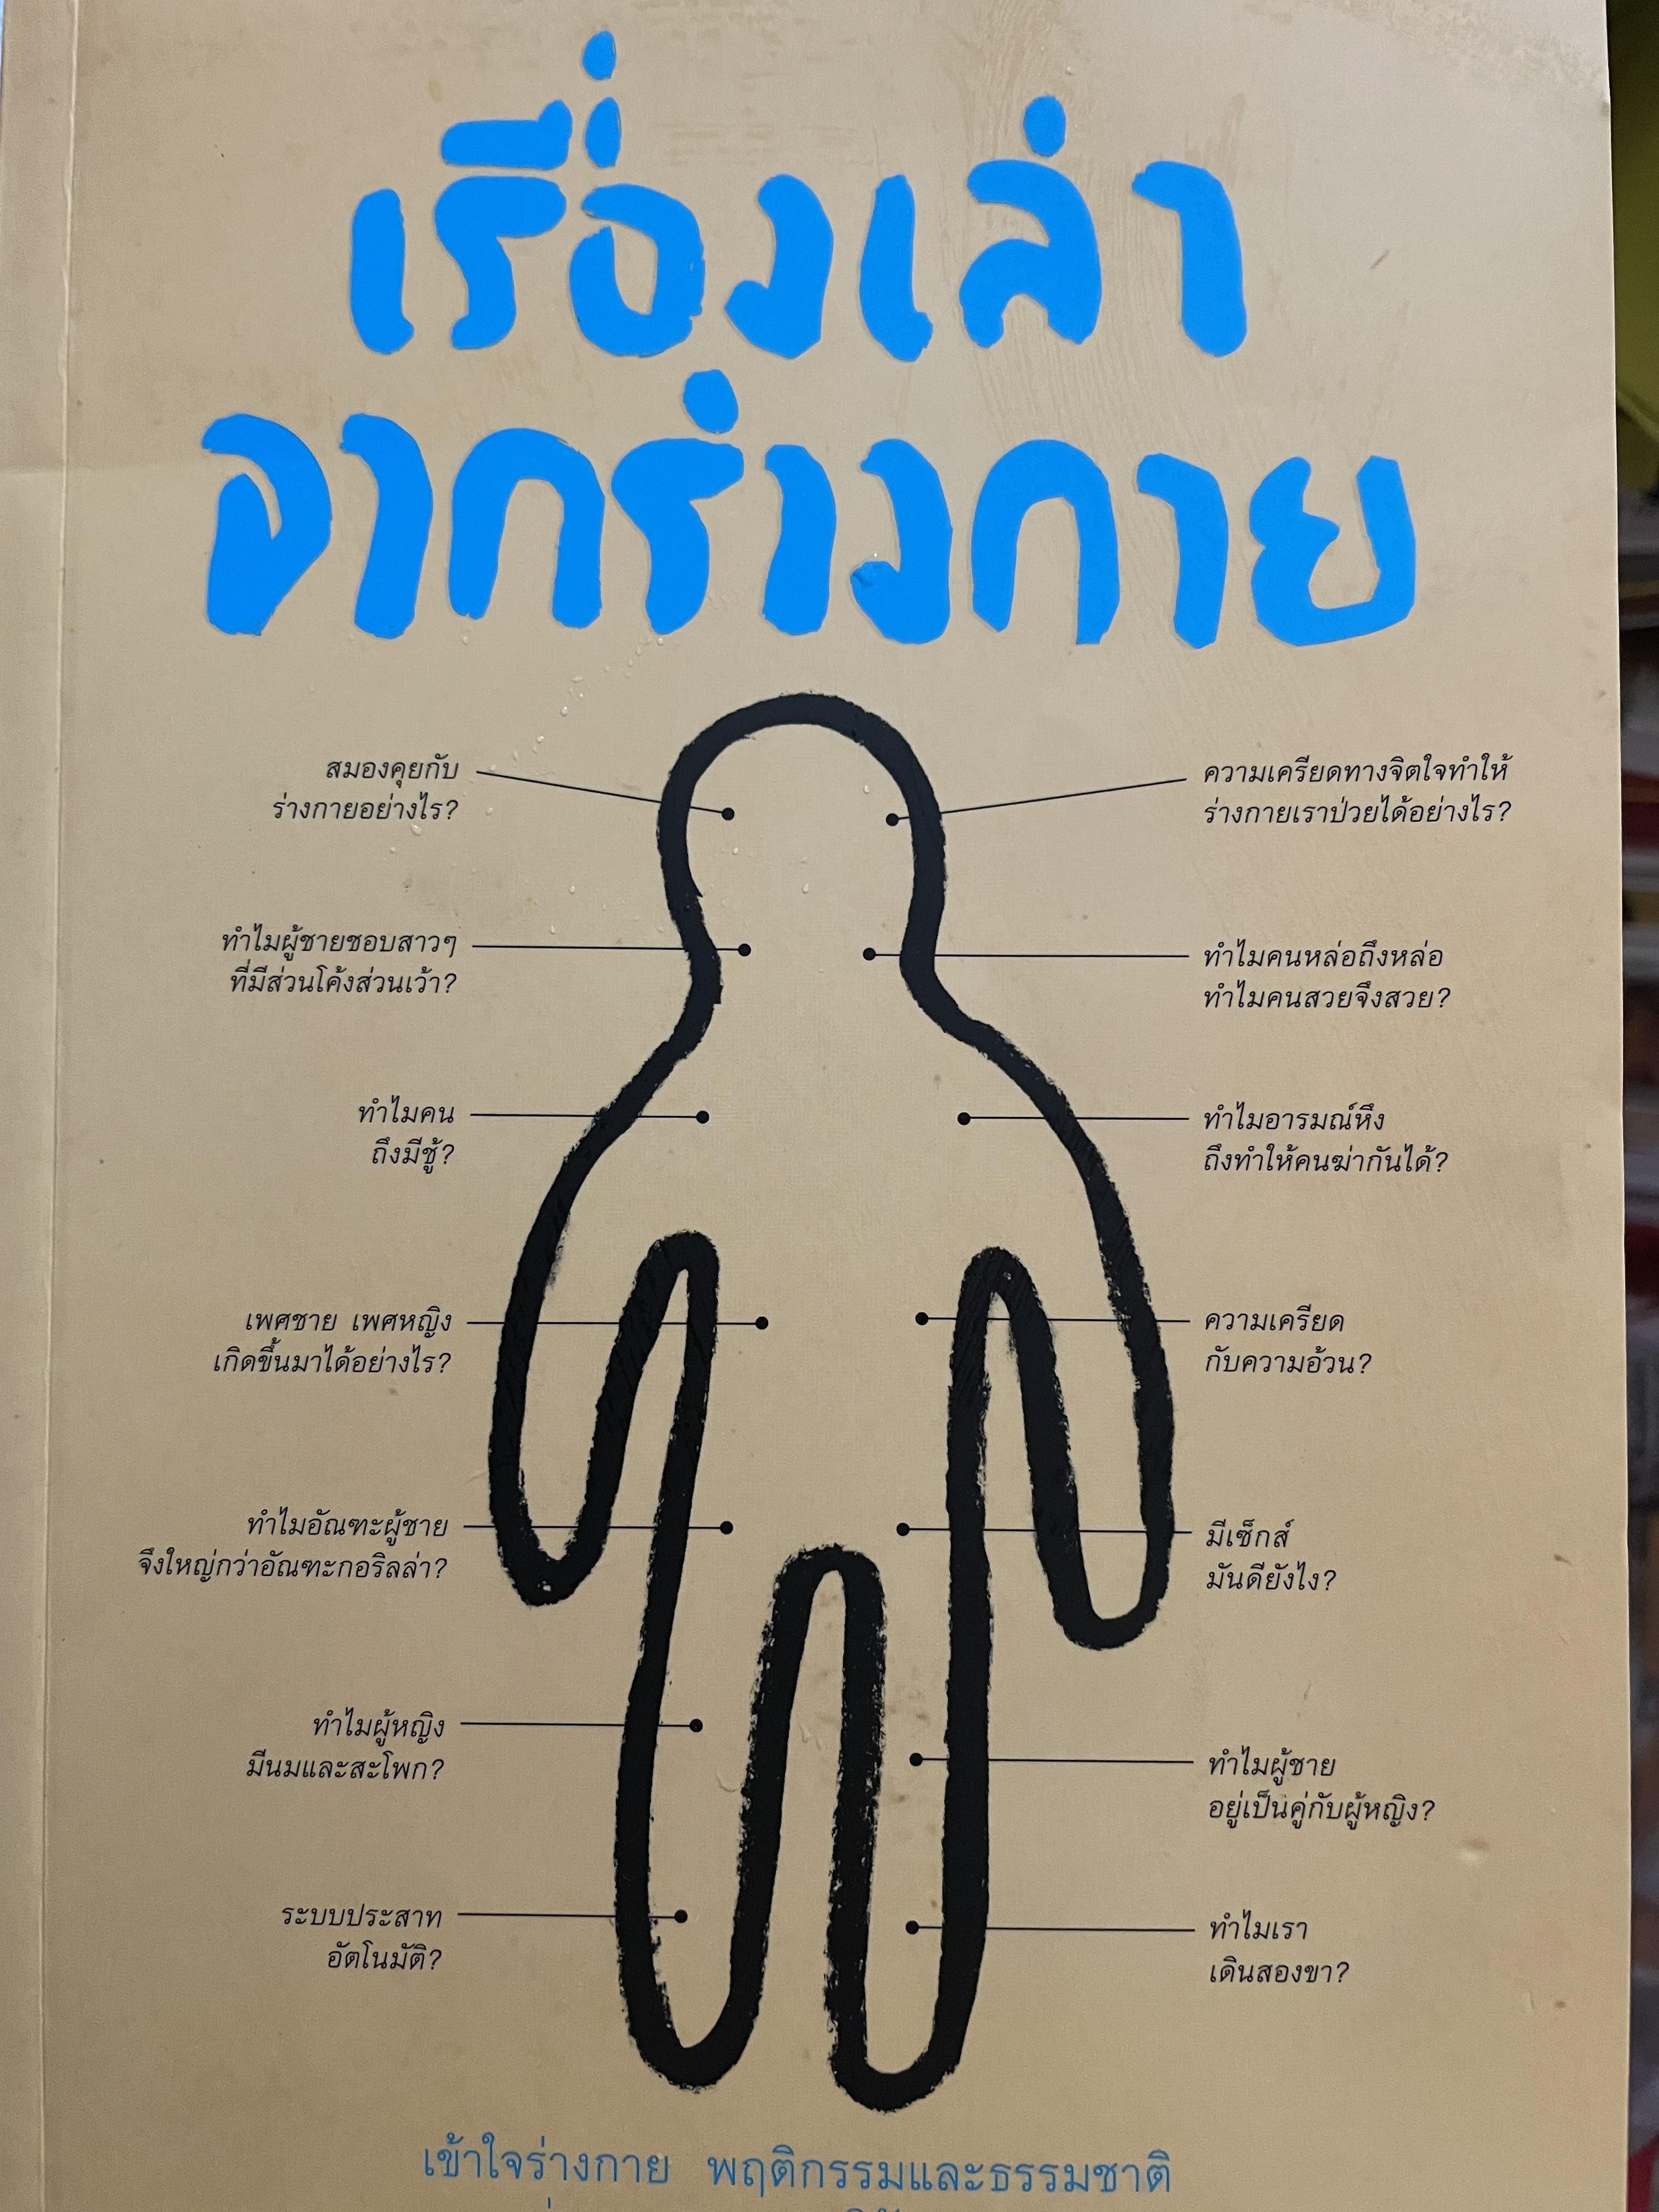 เรื่องเล่า
จากร่างกาย
สมองคุยกับ
ร่างกายอย่างไร?
ความเครียดทางจิตใจทำให้
ร่างกายเราป่วยได้อย่างไร?
ทำไมผู้ชายชอบสาวๆ
ที่มีส่วนโค้งส่วนเว้า?
ทำไมคนหล่อถึงหล่อ
ทำไมคนสวยจึงสวย?
ทำไมคน
ถึงมีชู้?
ทำไมอารมณ์หึง
ถึงทำให้คนฆ่ากันได้?
เพศชาย เพศหญิง
เกิดขึ้นมาได้อย่างไร?
ความเครียด
กับความอ้วน?
ทำไมอัณฑะผู้ชาย
จึงใหญ่กว่าอัณฑะกอริลล่า?
มีเซ็กส์
มันดียังไง?
ทำไมผู้หญิง
มีนมและสะโพก?
ทำไมผู้ชาย
อยู่เป็นคู่กับผู้หญิง?
ระบบประสาท
อัตโนมัติ?
ทำไมเรา
เดินสองขา?
เข้าใจร่างกาย พฤติกรรมและธรรมชาติ